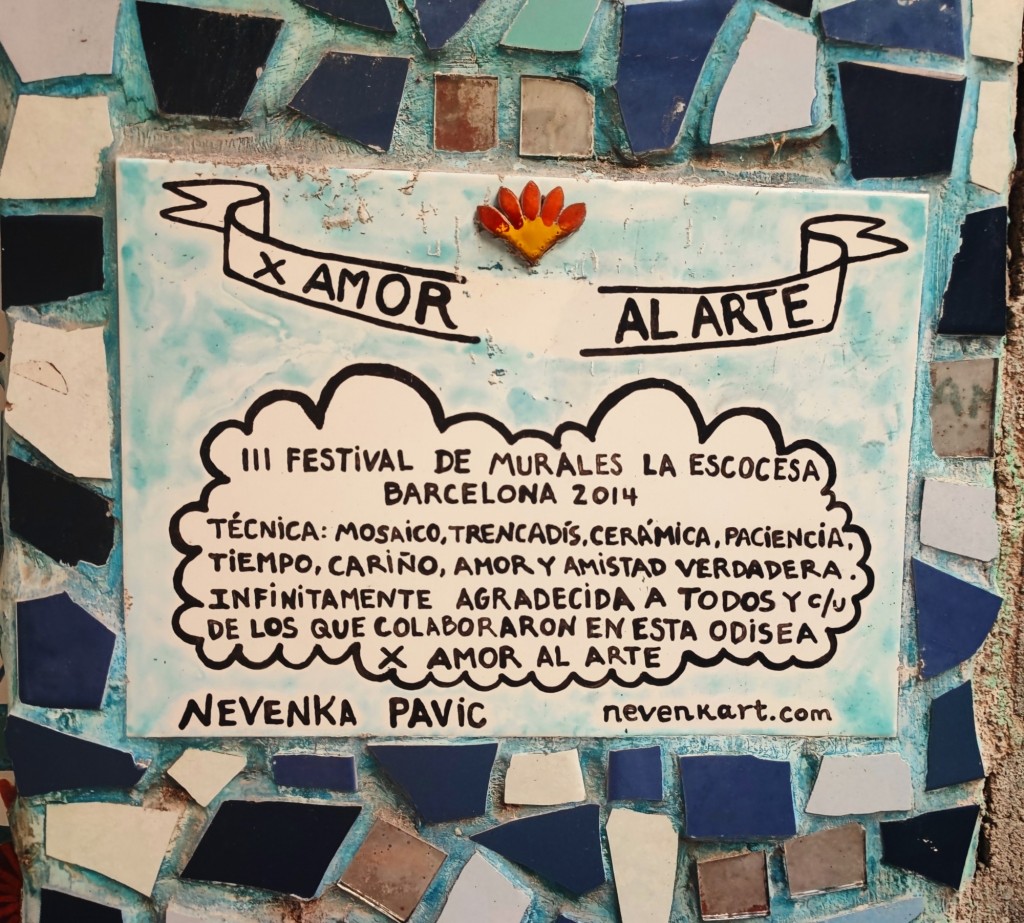 X AMOR AL ARTE
III FESTIVAL DE MURALES LA ESCOCESA
BARCELONA 2014
TÉCNICA: MOSAICO, TRENCADÍS, CERÁMICA, PACIENCIA,
TIEMPO, CARIÑO, AMOR Y AMISTAD VERDADERA.
INFINITAMENTE AGRADECIDA A TODOS Y C/U
DE LOS QUE COLABORARON EN ESTA ODISEA
X AMOR AL ARTE
NEVENKA PAVIC
nevenkart.com